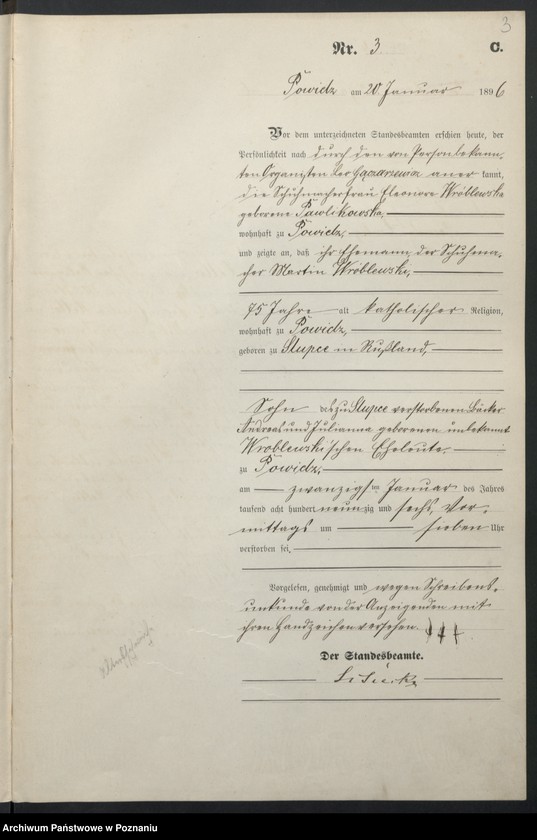 3
Nr. 3. C.
Powidz am 20. Januar 1896
Vor dem unterzeichneten Standesbeamten erschien heute, der
Persönlichkeit nach durch den von Person bekann-
ten Organisten Leo aner kannt,
die Schuhmacherfrau Eleonore Wróblewska
geborene Pawlikowska,
wohnhaft zu Powidz,
und zeigte an, daß ihr Ehemann, der Schuhma-
cher Martin Wróblewski,
75 Jahre alt katholischer Religion,
wohnhaft zu Powidz,
geboren zu Slupce in Rußland,
Sohn des zu Slupce verstorbenen Bäcker
Andreas und Julianna geborenen unbekannt
Wroblewski'schen Eheleute,
zu Powidz,
am zwanzigsten Januar des Jahres
tausend acht hundert neunzig und sechs, Vor-
mittags um sieben Uhr
verstorben sei.
Vorgelesen, genehmigt und wegen Schreibens-
unkunde von der Anzeigenden mit
ihren Handzeichen versehen. +++
Der Standesbeamte.
Archiwum Państwowe w Poznaniu